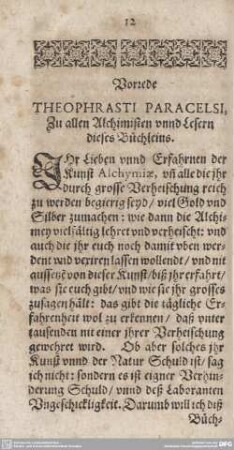 12
Vorrede
THEOPHRASTI PARACELSI,
Zu allen Alchimisten vnnd Lesern
dieses Büchleins.
IHr Lieben vnnd Erfahrnen der
Kunst Alchymiæ, vñ alle die jhr
durch grosse Verheischung reich
zu werden begierig seyd / viel Gold vnd
Silber zumachen: wie dann die Alchi-
mey vielfältig lehret vnd verheischt: vnd
auch die jhr euch noch damit vben wer-
dent vnd vexiren lassen wollendt / vnd nit
aussetzt von dieser Kunst / biß jhr erfahrt /
was sie euch gibt / vnd wie sie jhr grosses
zusagen hält: das gibt die tägliche Er-
fahrenheit wol zu erkennen / daß vnter
tausenden nit einer jhrer Verheischung
gewehrt wird. Ob aber solches jhr
Kunst vnnd der Natur Schuld ist / sag
ich nicht: sondern es ist eigner Verhin-
derung Schuld / vnnd deß Laboranten
Vngeschickligkeit. Darumb will ich diß
Büch-